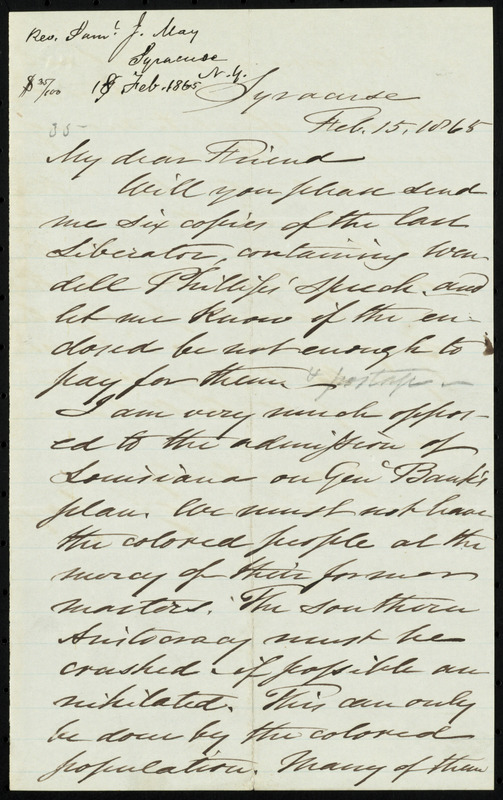 Rev. Saml. J. May
Syracuse
N.Y.
$ 35/100 18 Feb. 1865
Syracuse
Feb. 15, 1865
35
My dear Friend
Will you please send
me six copies of the last
Liberator, containing Wen-
dell Phillips' speech, and
let me know if the en-
closed be not enough to
pay for them & postage –
I am very much oppos-
ed to the admission of
Louisiana on Genl Bank's
plan. We must not have
the colored people at the
mercy of their former
masters. The Southern
Aristocracy must be
crushed - if possible an-
nihilated. This can only
be done by the colored
population. Many of them